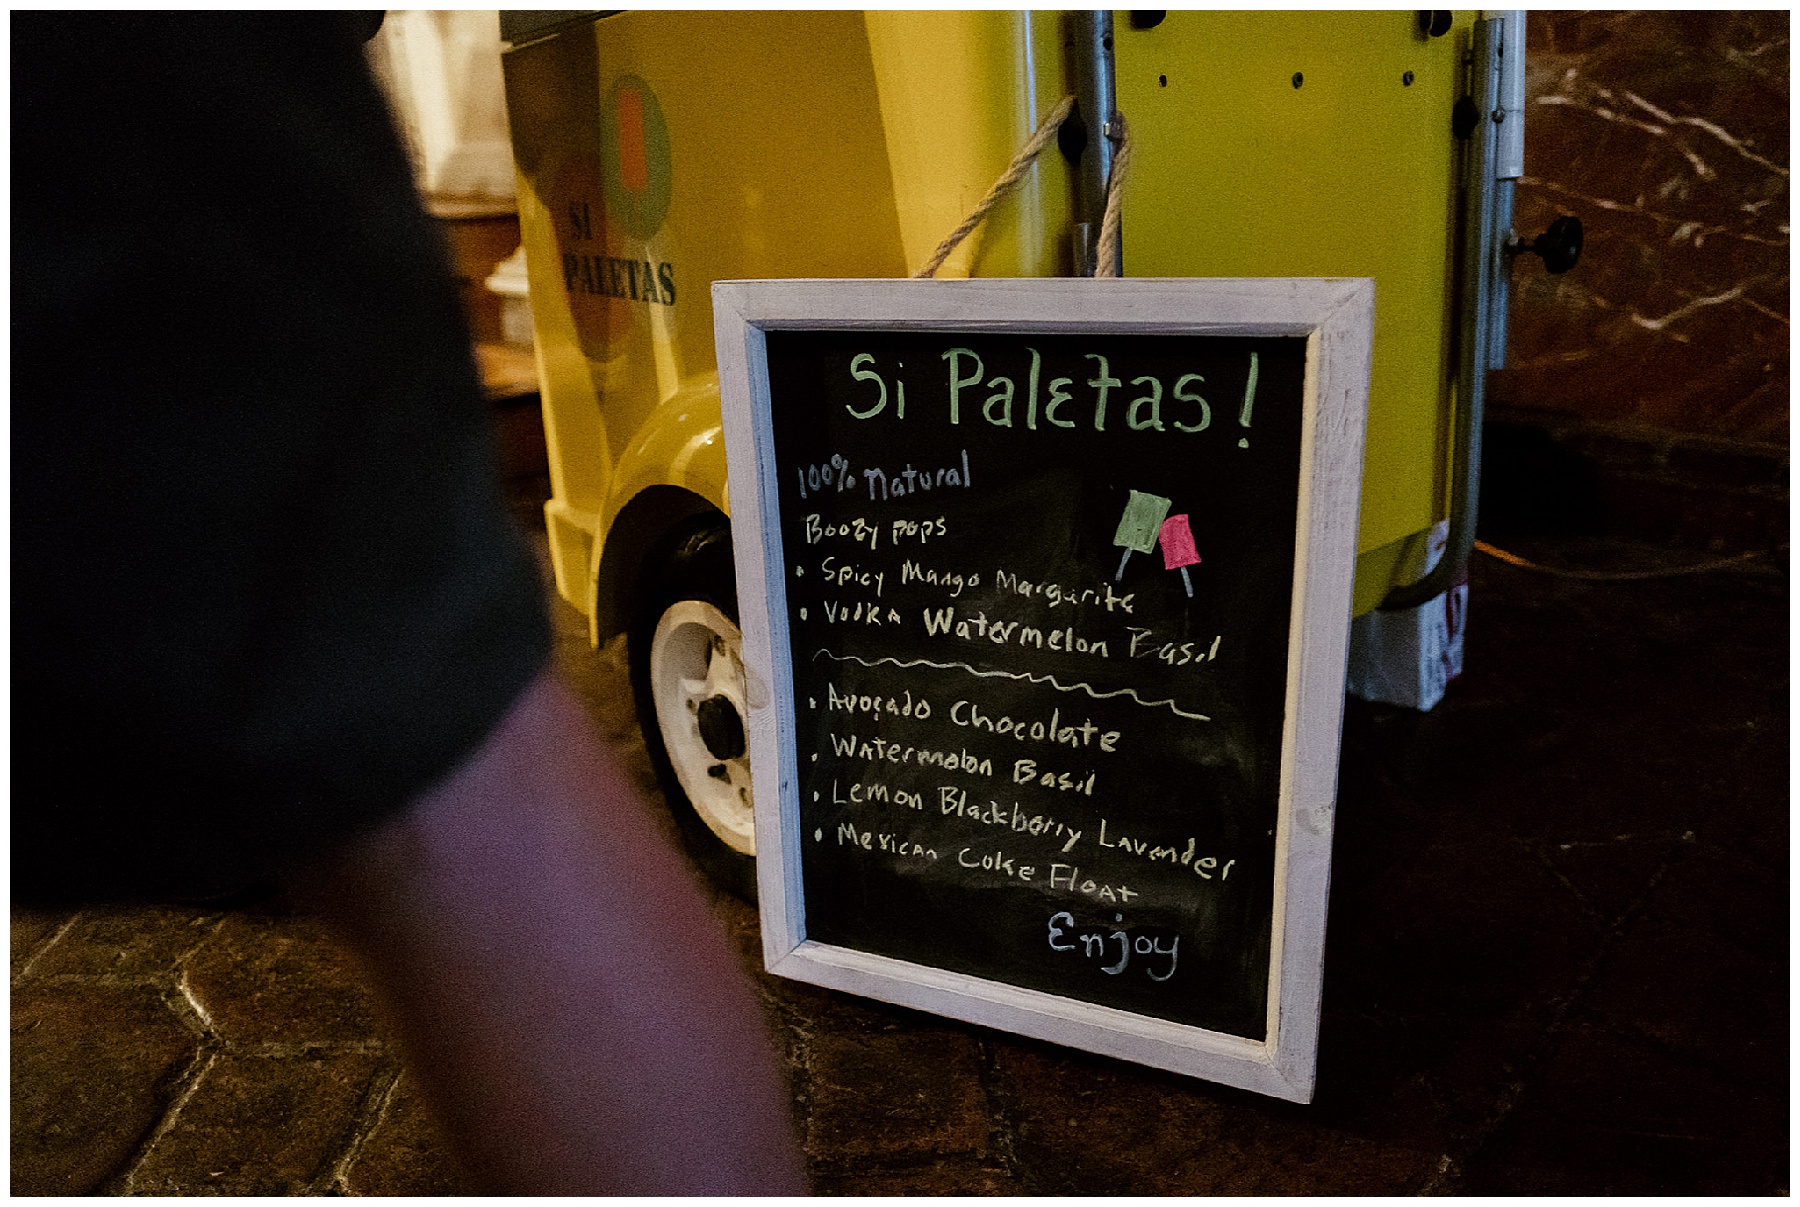 SI
PALETAS
Si Paletas!
100% Natural
Boozy pops
• Spicy Mango Margarita
• Vodka Watermelon Basil
• Avocado Chocolate
• Watermelon Basil
• Lemon Blackberry Lavender
• Mexican Coke Float
Enjoy